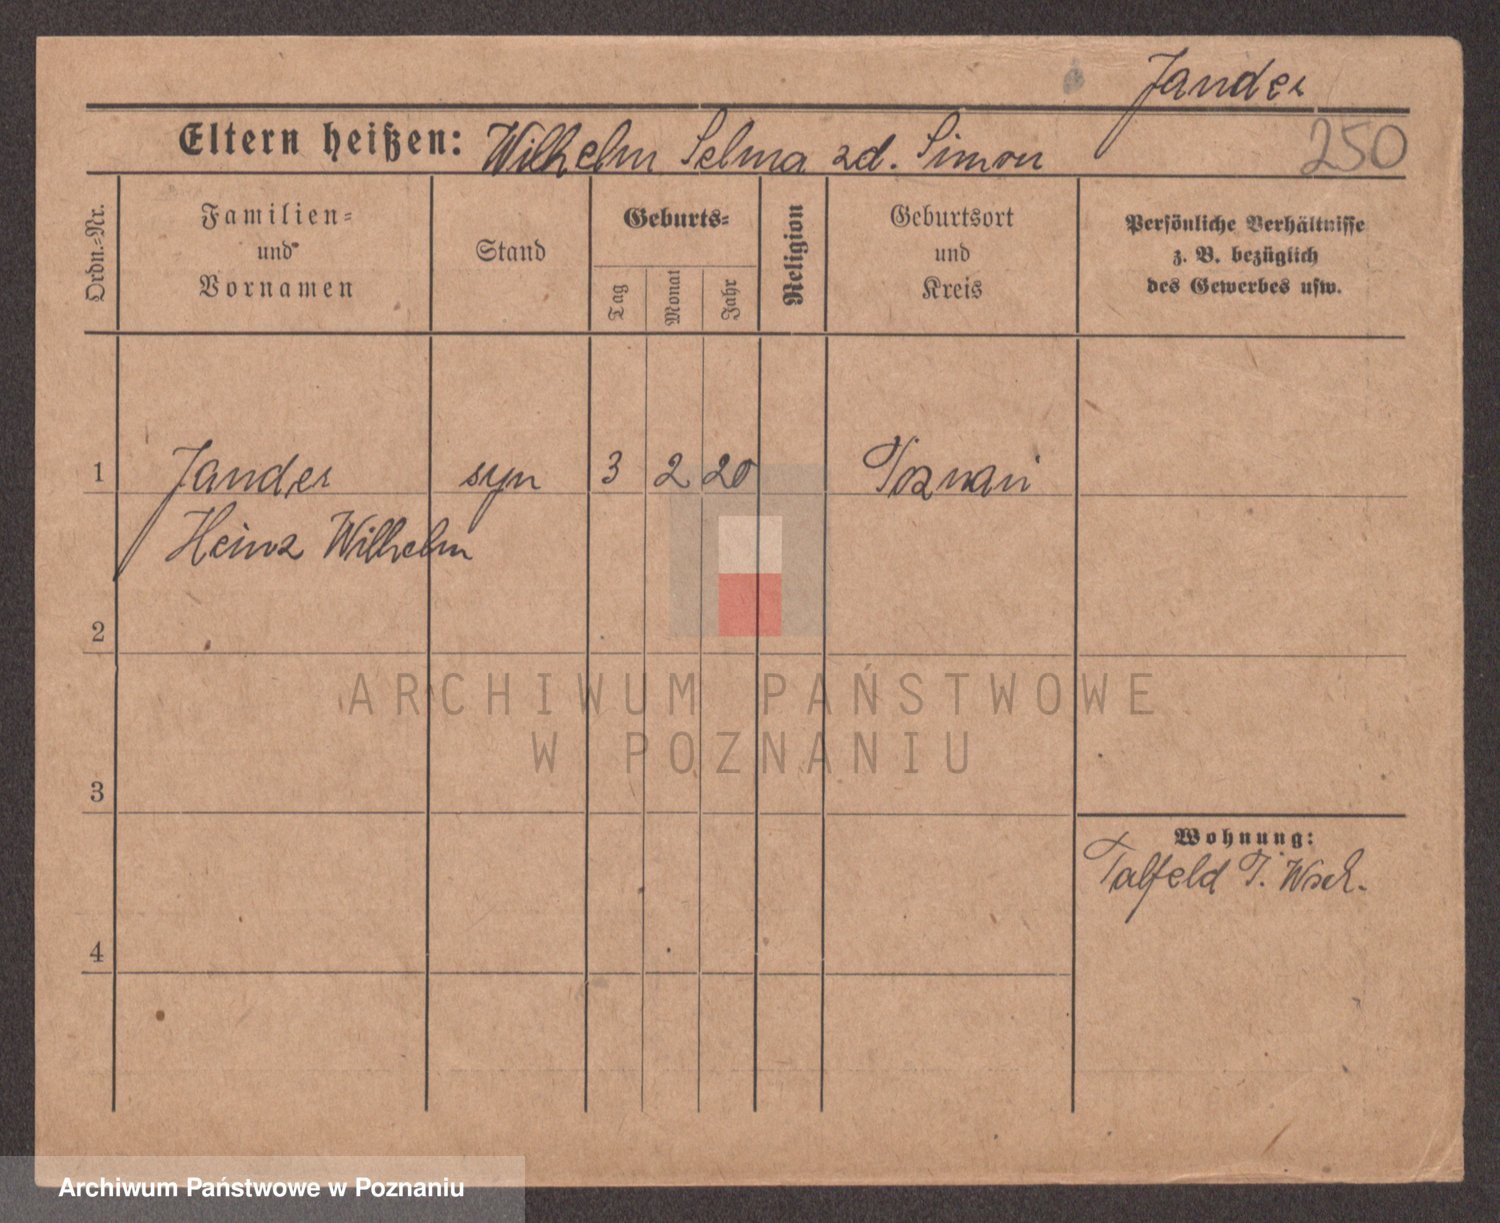 Jander
Eltern heißen: Wilhelm Selma zd. Simon
250
Ordn.-Nr.
Familien-
und
Vornamen
Stand
Geburts-
Tag
Monat
Jahr
Religion
Geburtsort
und
Kreis
Persönliche Verhältnisse
z. B. bezüglich
des Gewerbes usw.
1 Jander syn 3 2 20 Poznań
Heinz Wilhelm
2
ARCHIWUM PAŃSTWOWE
W POZNANIU
3
Wohnung:
4
Archiwum Państwowe w Poznaniu